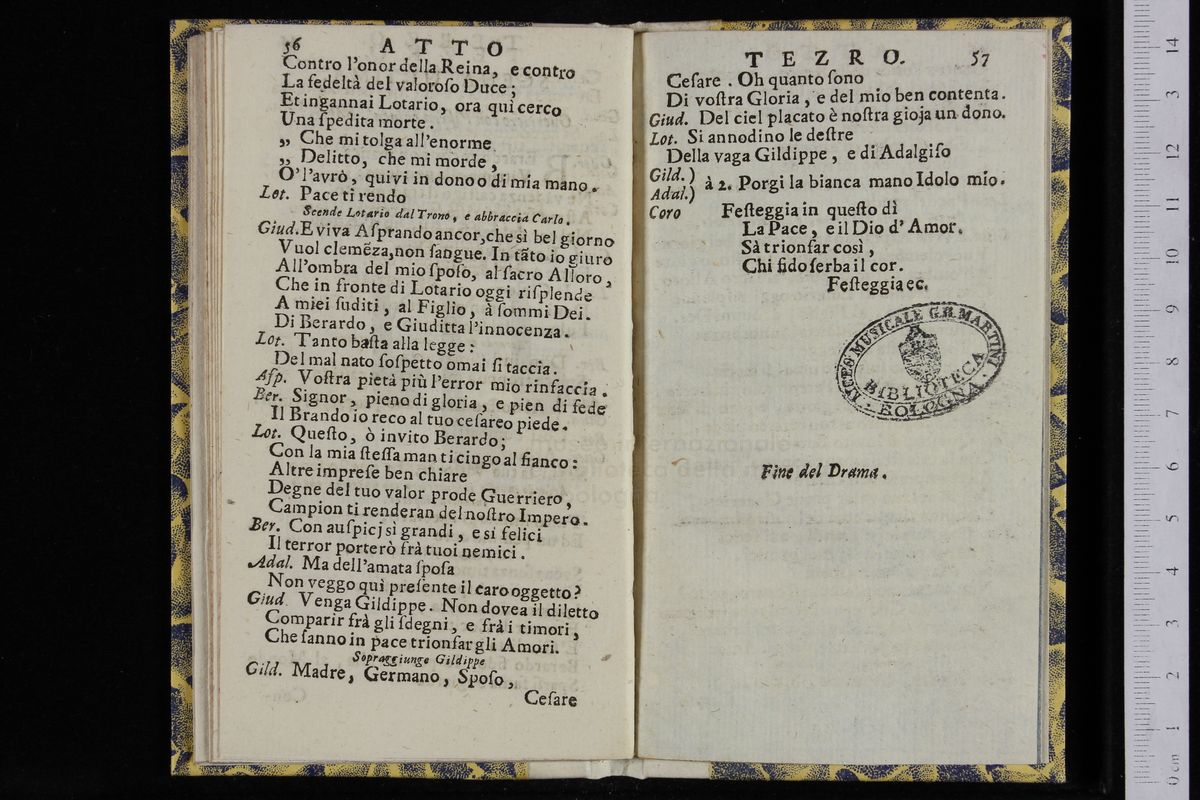 56 ATTO
Contro l'onor della Reina, e contro
La fedeltà del valoroſo Duce;
Et ingannai Lotario, ora quì cerco
Una ſpedita morte.
„ Che mi tolga all'enorme
„ Delitto, che mi morde,
O' l'avrò, quivi in dono o di mia mano.
Lot. Pace ti rendo
Scende Lotario dal Trono, e abbraccia Carlo.
Giud. E viva Aſprando ancor, che sì bel giorno
Vuol clemẽza, non ſangue. In tãto io giuro
All'ombra del mio ſpoſo, al ſacro Alloro,
Che in fronte di Lotario oggi riſplende
A miei ſuditi, al Figlio, à ſommi Dei.
Di Berardo, e Giuditta l'innocenza.
Lot. Tanto baſta alla legge:
Del mal nato ſoſpetto omai ſi taccia.
Aſp. Voſtra pietà più l'error mio rinfaccia.
Ber. Signor, pieno di gloria, e pien di fede
Il Brando io reco al tuo ceſareo piede.
Lot. Queſto, ò invito Berardo;
Con la mia ſteſſa man ti cingo al fianco:
Altre impreſe ben chiare
Degne del tuo valor prode Guerriero,
Campion ti renderan del noſtro Impero.
Ber. Con auſpicj sì grandi, e sì felici
Il terror porterò frà tuoi nemici.
Adal. Ma dell'amata ſpoſa
Non veggo quì preſente il caro oggetto?
Giud. Venga Gildippe. Non dovea il diletto
Comparir frà gli ſdegni, e frà i timori,
Che ſanno in pace trionfar gli Amori.
Sopraggiunge Gildippe
Gild. Madre, Germano, Spoſo,
Ceſare
TEZRO. 57
Ceſare. Oh quanto ſono
Di voſtra Gloria, e del mio ben contenta.
Giud. Del ciel placato è noſtra gioja un dono.
Lot. Si annodino le deſtre
Della vaga Gildippe, e di Adalgiſo
Gild.)
Adal.) à 2. Porgi la bianca mano Idolo mio.
Coro Feſteggia in queſto dì
La Pace, e il Dio d'Amor.
Sà trionfar così,
Chi fido ſerba il cor.
Feſteggia ec.
LICEO MUSICALE G.B. MARTINI
BIBLIOTECA
BOLOGNA
Fine del Drama.
14
3
12
11
10
9
8
7
6
5
4
3
2
1
0 cm